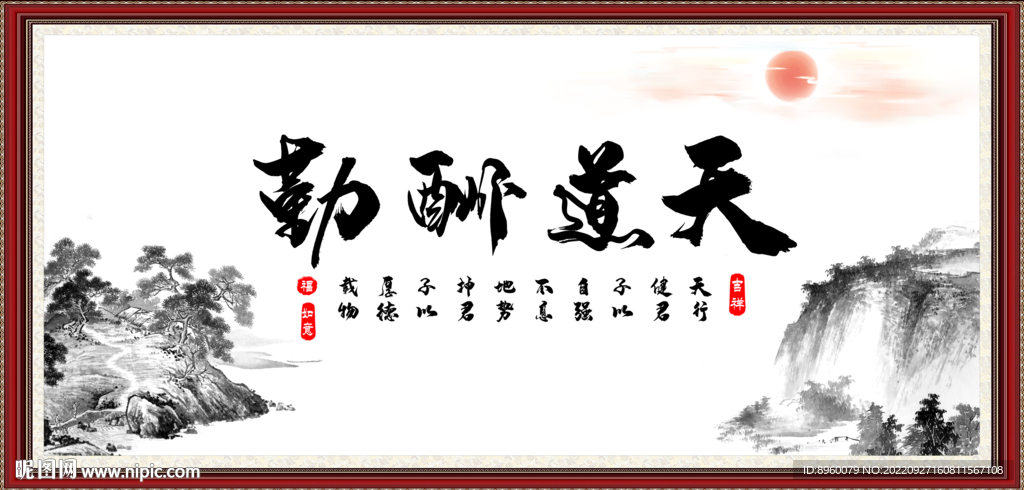 天道酬勤
吉祥
天行
健君
子以
自强
不息
地势
坤君
子以
厚德
载物
福
如意
昵图网 www.nipic.com
ID:8960079 NO:20220927160811567108